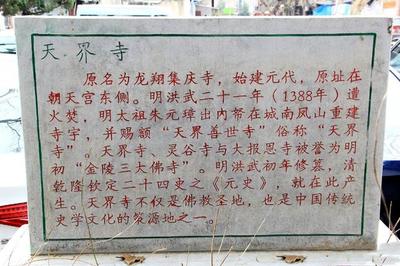 天界寺
原名为龙翔集庆寺，始建元代，原址在
朝天宫东侧。明洪武二十一年（1388年）遭
火焚，明太祖朱元璋出内帑在城南凤山重建
寺宇，并赐额“天界善世寺”俗称“天界
寺”。天界寺、灵谷寺与大报恩寺被誉为明
初“金陵三大佛寺”。明洪武初年修慕，清
乾隆钦定二十四史之《元史》，就在此产
生。天界寺不仅是佛教圣地，也是中国传统
史学文化的策源地之一。